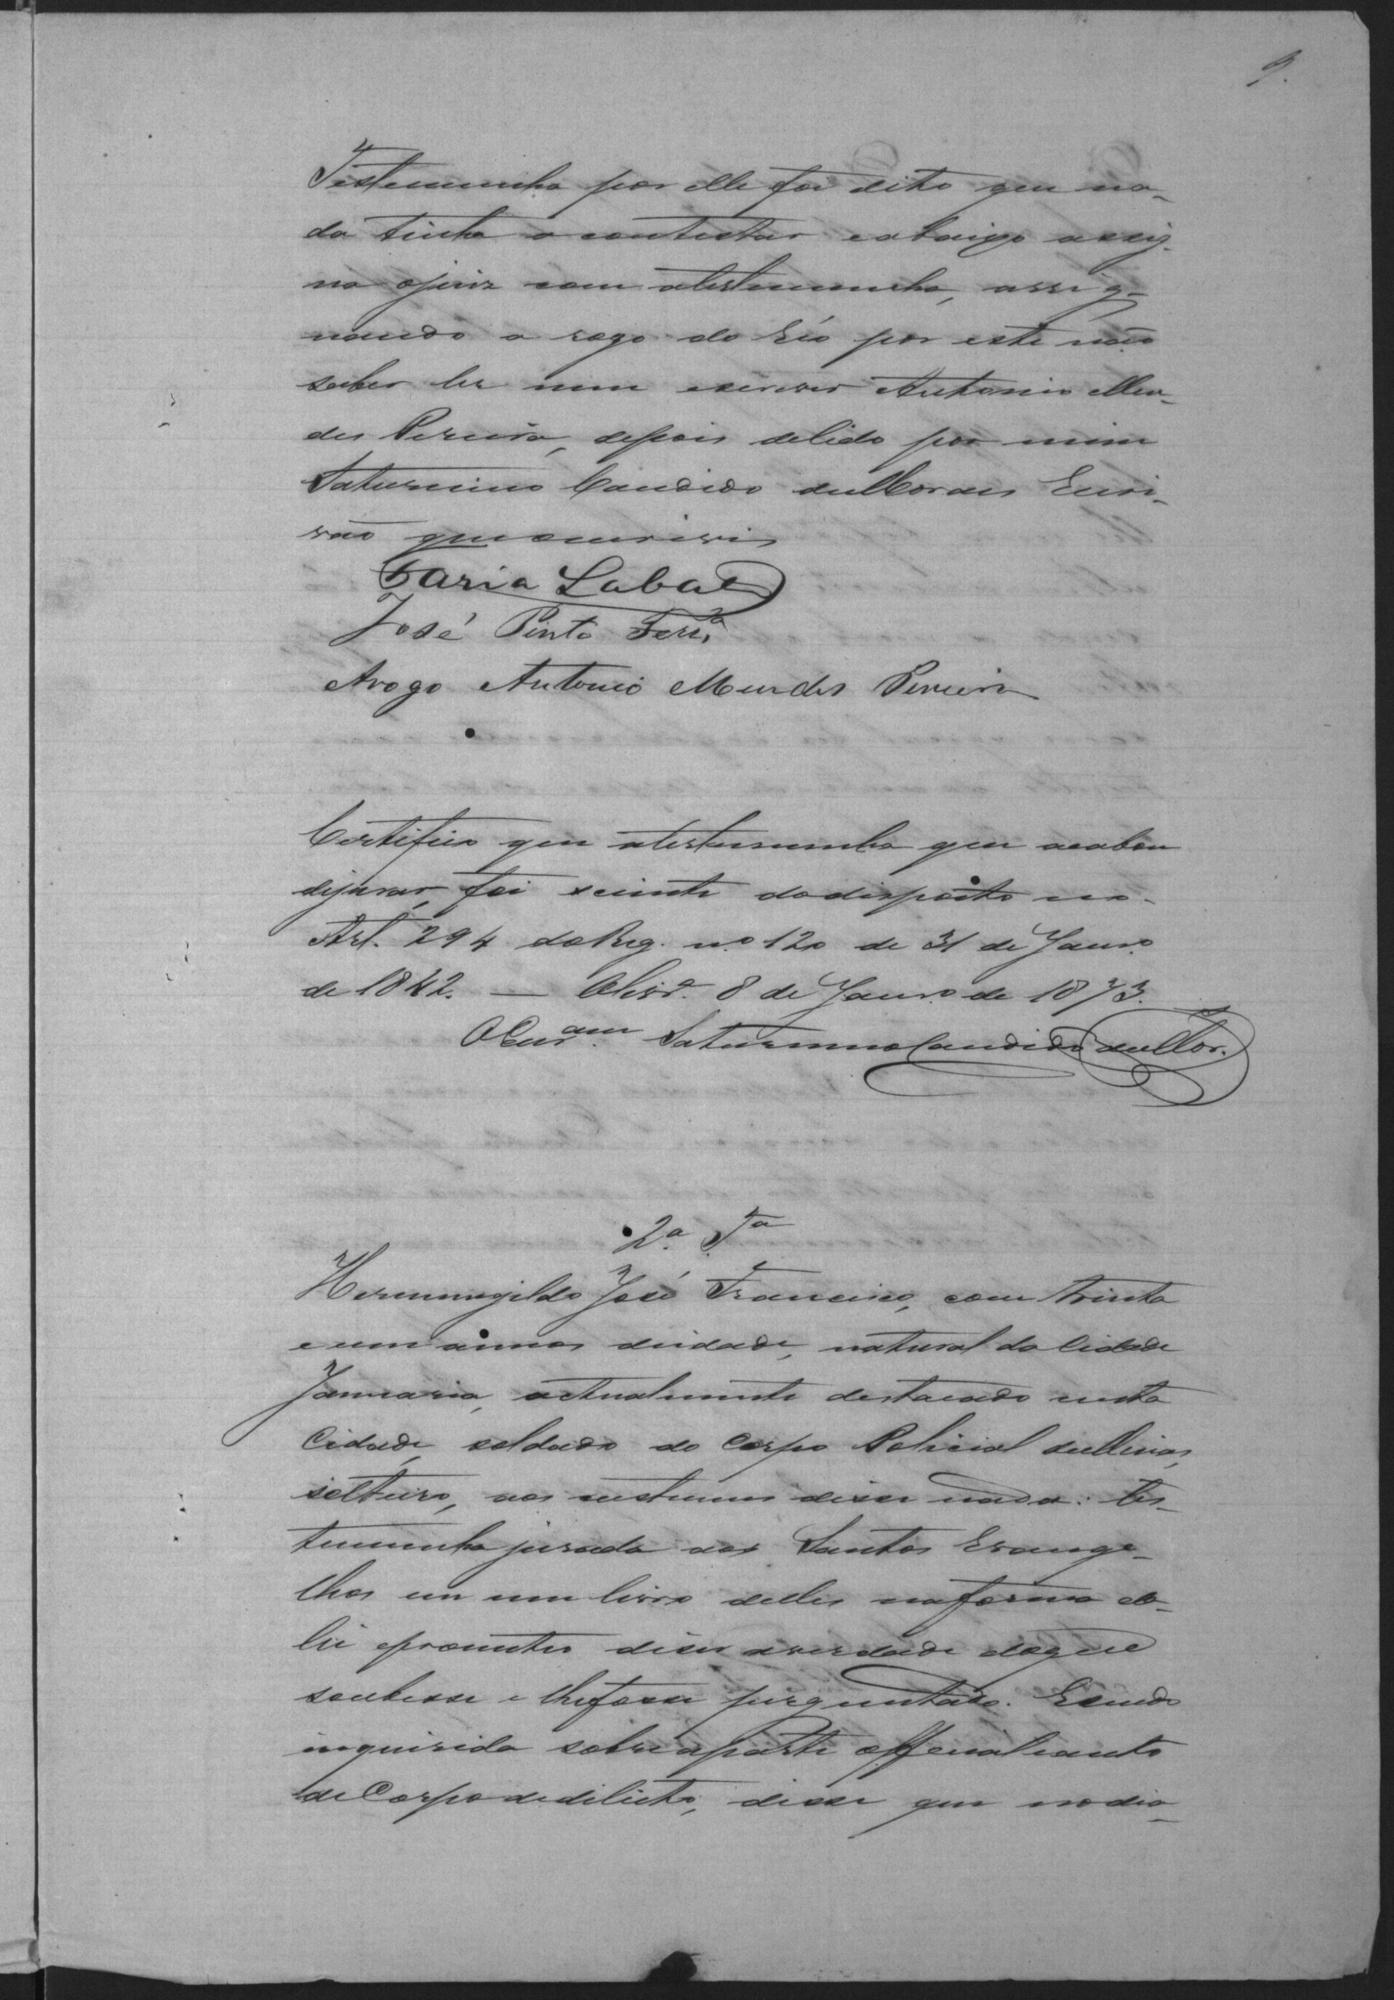 9.
Testemunha por elle foi dito que na-
da tinha a contestar e abaixo assig-
na o juiz com a testemunha, assig-
nando a rogo do Réo por este não
saber ler nem escrever Antonio Men-
des Pereira, depois de lido por mim
Saturnino Candido de Moraes Escri-
vão que o escrivi
Faria Lobato
José Pinto Ferrª
Arogo Antonio Mendes Pereira
Certifico que a testemunha que acabou
de jurar, foi sciente do disposto no
Art. 294 do Reg. nº 120 de 31 de Janrº
de 1842. — 8 de Janrº de 1873.
O Escram Saturnino Candido de Mor.
2ª Tª
Hermenegildo José Francisco, com trinta
e um annos de idade, natural da Cidade
Januaria, actualmente destacado nesta
Cidade, soldado do Corpo Policial de Minas,
solteiro, aos costumes disse nada: tes-
temunha jurada aos Santos Evange-
lhos em um livro delles na forma da
lei e prometteo diser a verdade do que
soubesse e lhe fosse perguntado. E sendo
inquirida sobre a parte official e auto
de Corpo de delicto, disse que no dia